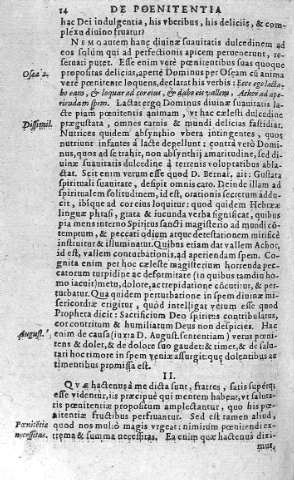 14 DE POENITENTIA
hac Dei indulgentia, his vberibus, his deliciis, & com-
plexu diuino fruatur?
NEMO autem hanc diuinæ suauitatis dulcedinem ad
eos solùm qui ad perfectionis apicem peruenerunt, re-
seruari putet. Esse enim verè pœnitentibus suas quoque
Osaæ 2. propositas delicias, apertè Dominus per Oseam cũ anima
verè pœnitente loquens, declarat his verbis: Ecce ego lacta-
bo eam, & loquar ad cor eius, & dabo ei vallem, Achor ad ape-
riẽdam spem. Lactat ergo Dominus diuinæ suauitatis la-
cte piam pœnitentis animam, vt hac cælesti dulcedine
Dissimil. prægustata, omnes carnis & mundi delicias fastidiat.
Nutrices quidem absynthio vbera intingentes, quos
nutriunt infantes à lacte depellunt: contrà verò Domi-
nus, quos ad se trahit, non absynthij amaritudine, sed di-
uinæ suauitatis dulcedine à terrenis voluptatibus abla-
ctat. Scit enim verum esse quod D. Bernar. ait: Gustata
spirituali suauitate, desipit omnis caro. Deinde illam ad
spiritualem solitudinem, id est, orationis secretum addu-
cit, ibique ad cor eius loquitur: quod quidem Hebrææ
linguæ phrasi, grata & iucunda verba significat, quibus
pia mens interno Spiritus sancti magisterio ad mundi cõ-
temptum, & peccati odium atque detestationem mirificè
instituitur & illuminatur. Quibus etiam dat vallem Achor,
id est, vallem conturbationis, ad aperiendam spem. Co-
gnita enim per hoc cæleste magisterium horrenda pec-
catorum turpidine ac deformitate (in quibus tamdiu ho-
mo iacuit) metu, dolore, ac trepidatione cõcutitur, & per-
turbatur. Qua quidem perturbatione in spem diuinæ mi-
sericordiæ erigitur, quòd intelligat verum esse quod
Propheta dicit: Sacrificium Deo spiritus contribulatus,
cor contritum & humiliatum Deus non despicies. Hac
August. enim de causa (iuxta D. August. sententiam) verus pœni-
tens & dolet, & de dolore suo gaudet: & timet, & de salu-
tari hoc timore in spem veniæ assurgit: quę dolentibus ac
timentibus promissa est.
II.
QVÆ hactenus à me dicta sunt, fratres, satis superque
esse videntur, iis præcipuè qui mentem habent, vt saluta-
ris pœnitentiæ propositum amplectantur, quo his pœ-
nitentiæ fructibus perfruantur. Sed est tamen aliud,
Pœnitẽtiæ quod nos multò magis vrgeat: nimirum pœnitendi ex-
necessitas. trema & summa necessitas. Ea enim quæ hactenus dixi-
mus,